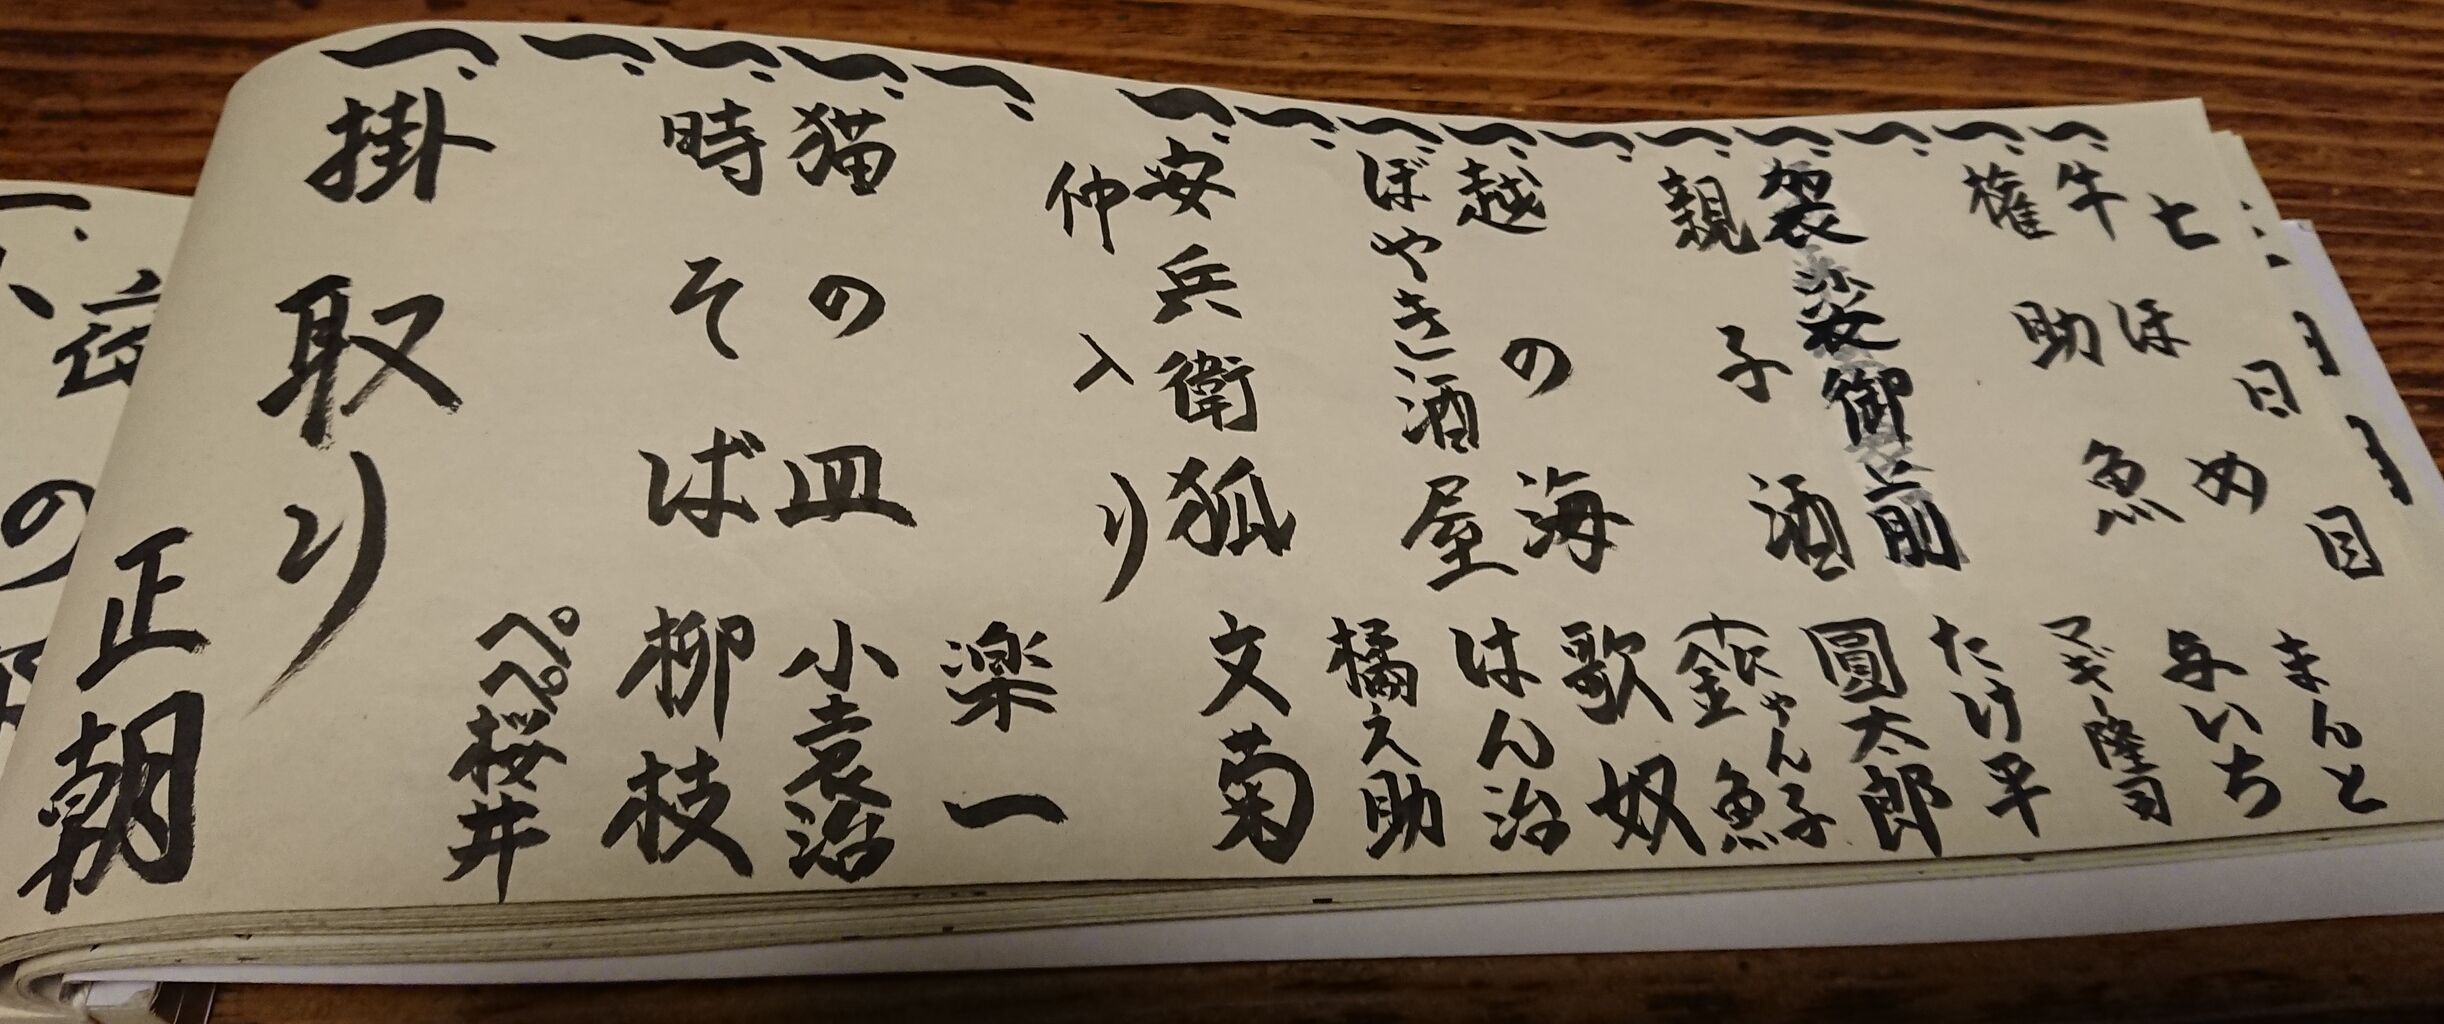 七日目
一、牛ほめ まんと
一、権助魚 与いち
一、マギー隆司
一、袈裟御前 たけ平
一、親子酒 圓太郎
一、にゃん子 金魚
一、越の海 歌奴
一、ぼやき酒屋 はん治
一、橘之助
一、安兵衛狐 文菊
仲入り
一、楽一
一、猫の皿 小袁治
一、時そば 柳枝
一、ペペ桜井
一、掛取り 正朝